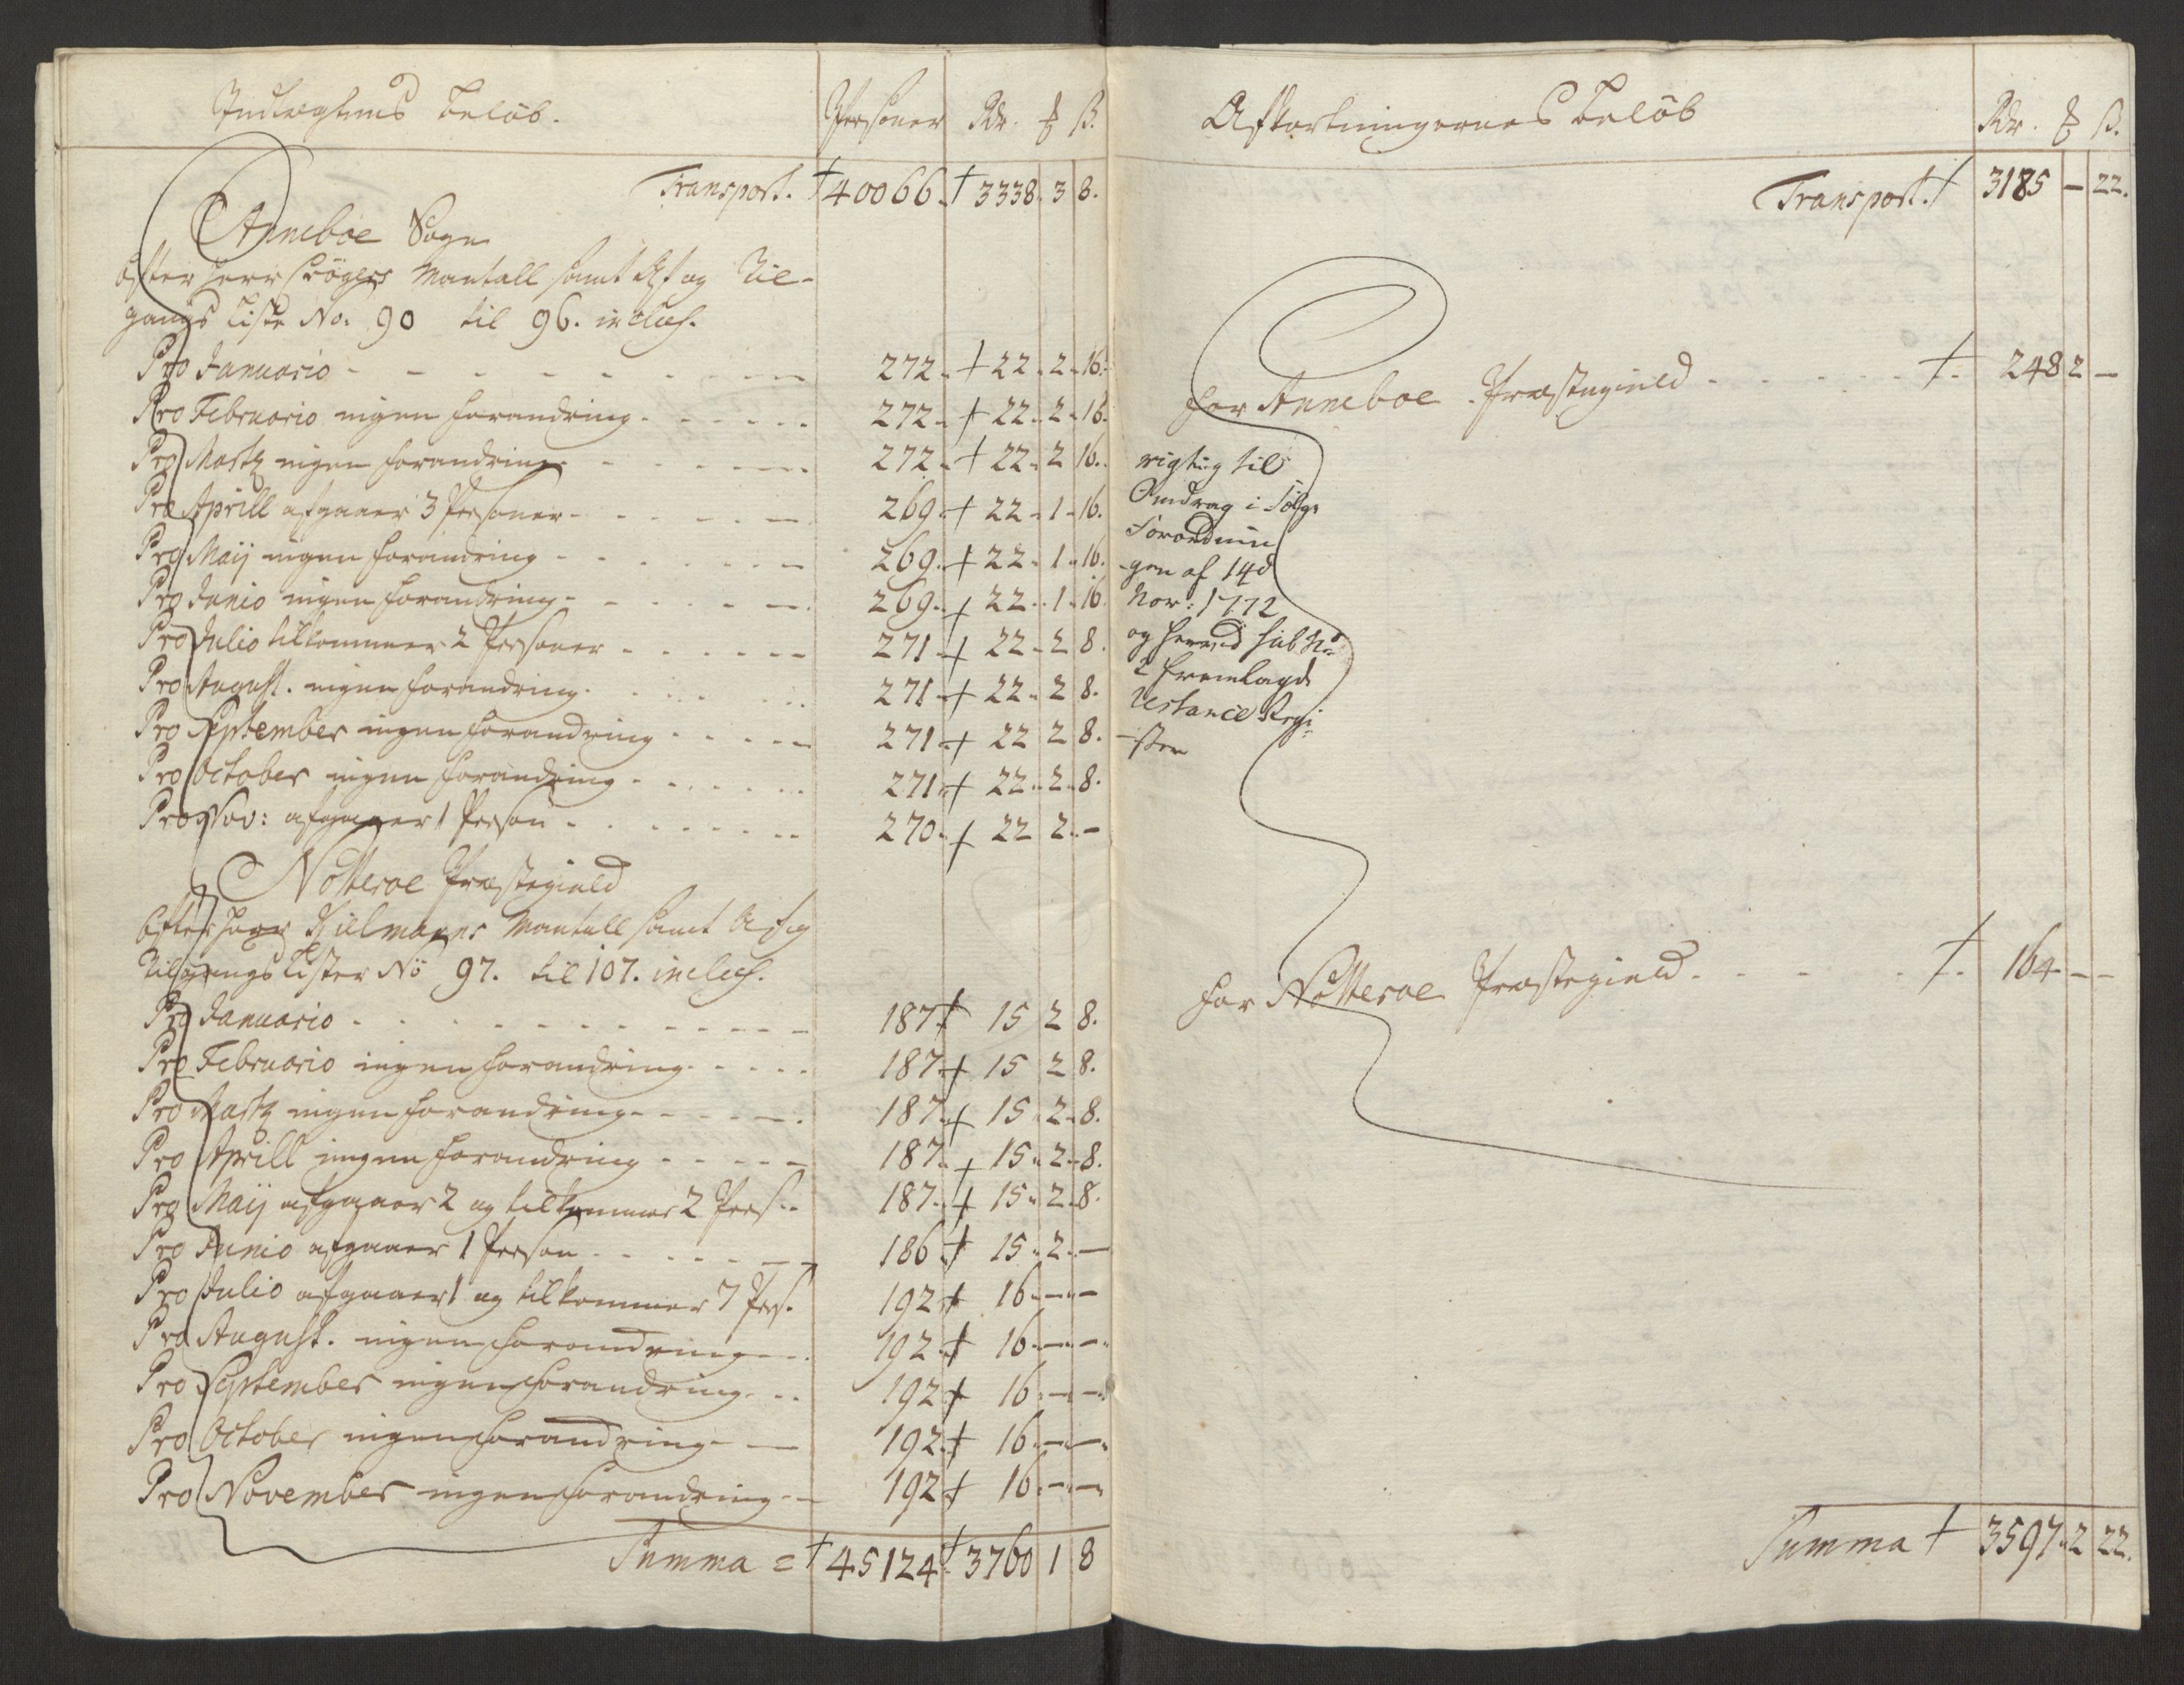 Indtægtens Beløb. Personer Rdr. ₰ ß.
Transport. † 40066. † 3338. 3 8.
Anneboe Sogn
Efter Herr Crøgers Mantall samt Af og Til-
gangs Liste No: 90 til 96. inclus.
Pro Januario - - - 272. + 22. 2. 16.
Pro Februario ingen forandring - - - 272. + 22. 2. 16.
Pro Martz ingen forandring - - - 272. + 22. 2 16.
Pro Aprill afgaaer 3 Personer - - - 269. + 22. 1. 16.
Pro Maij ingen forandring - - - 269. + 22. 1. 16.
Pro Junio ingen forandring - - - 269. + 22. 1. 16
Pro Julio tilkommer 2 Personer - - - 271. + 22. 2 8.
Pro August. ingen forandring - - - 271. + 22. 2 8.
Pro September ingen forandring - - - 271. + 22 2 8.
Pro October ingen forandring - - - 271. + 22. 2. 8.
Pro Nov: afgaaer 1 Person - - - 270. + 22 2. -
Nøtteroe Præstegield
Efter Herr Hielmanns Mantall samt Af og
Tilgangs Lister No 97. til 107. inclus.
Pro Januario - - - 187 + 15 2 8.
Pro Februario ingen forandring - - - 187. + 15 2 8.
Pro Martz ingen forandring - - - 187. + 15. 2. 8.
Pro Aprill ingen forandring - - - 187. + 15. 2. 8.
Pro Maij afgaaer 2 og tilkommer 2 Pers: - 187. + 15. 2. 8.
Pro Junio afgaaer 1 Person - - - 186. + 15. 2. -
Pro Julio afgaaer 1 og tilkommer 7 Pers. 192 + 16. - -
Pro August. ingen forandring - - 192. + 16. - -
Pro September ingen forandring - - 192. + 16. - -
Pro October ingen forandring - - 192. + 16. - -
Pro November ingen forandring - - 192 + 16. - -
Summa = † 45124. † 3760 1 8
Afkortningernes Beløb Rdr. ₰ ß.
Transport. † 3185 - 22.
for Anneboe Præstegield - - - †. 248 2 -
rigtig til
Omdrag i Følge
Forordnin
-gen af 14d
Nov: 1772
og herved sub No
2 fremlagde
Restance Regi
-ster
for Nøtteroe Præstegield - - - †. 164 - -
Summa † 3597. 2 22.